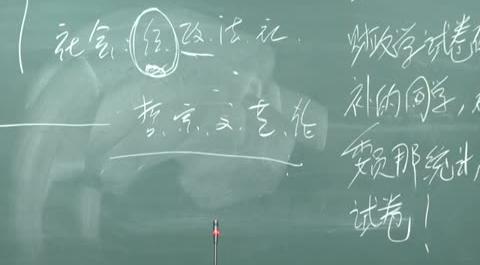 社会：经、政、法、社、
哲、宗、文、艺、伦
财政学试卷
补的同学，
委员那统计，
试卷！